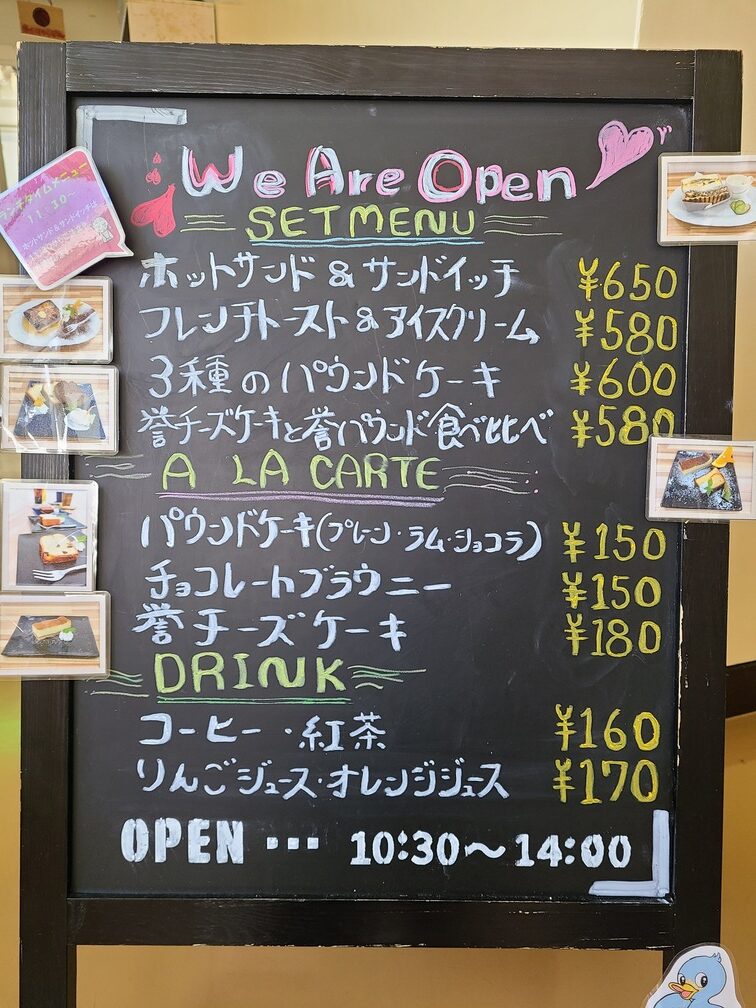 We Are Open
SET MENU
ホットサンド&サンドイッチ ¥650
フレンチトースト&アイスクリーム ¥580
3種のパウンドケーキ ¥600
誉チーズケーキと誉パウンド食べ比べ ¥580
A LA CARTE
パウンドケーキ(プレーン・ラム・ショコラ) ¥150
チョコレートブラウニー ¥150
誉チーズケーキ ¥180
DRINK
コーヒー・紅茶 ¥160
りんごジュース・オレンジジュース ¥170
OPEN … 10:30~14:00
ランチタイムメニュー
11:30~
ホットサンド&サンドイッチは